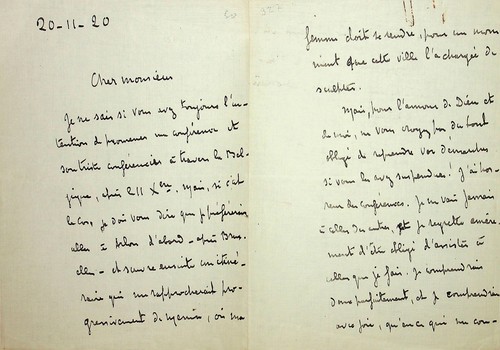 20-11-20
Cher monsieur
Je ne sais si vous avez toujours l'in-
tention de promener ma conférence et
son triste conférencier à travers la Bel-
gique, après le 11 Xbre. Mais, si c'est
le cas, je dois vous dire que je préférerais
aller à d'abord - après Bru-
xelles - et suivre ensuite un itiné-
raire qui me rapprocherait pro-
gressivement de , où ma
femme doit se rendre, pour un monu-
ment que cette ville l'a chargée de
sculpter.
Mais, pour l'amour de Dieu et
de moi, ne vous croyez pas du tout
obligé de reprendre vos démarches
si vous les avez suspendues! J'ai hor-
reur des conférences. Je ne vais jamais
à celles des autres, et je regrette amère-
ment d'être obligé d'assister à
celles que je fais. Je comprendrais
donc parfaitement, et je comprendrais
avec joie, qu'en ce qui me con-